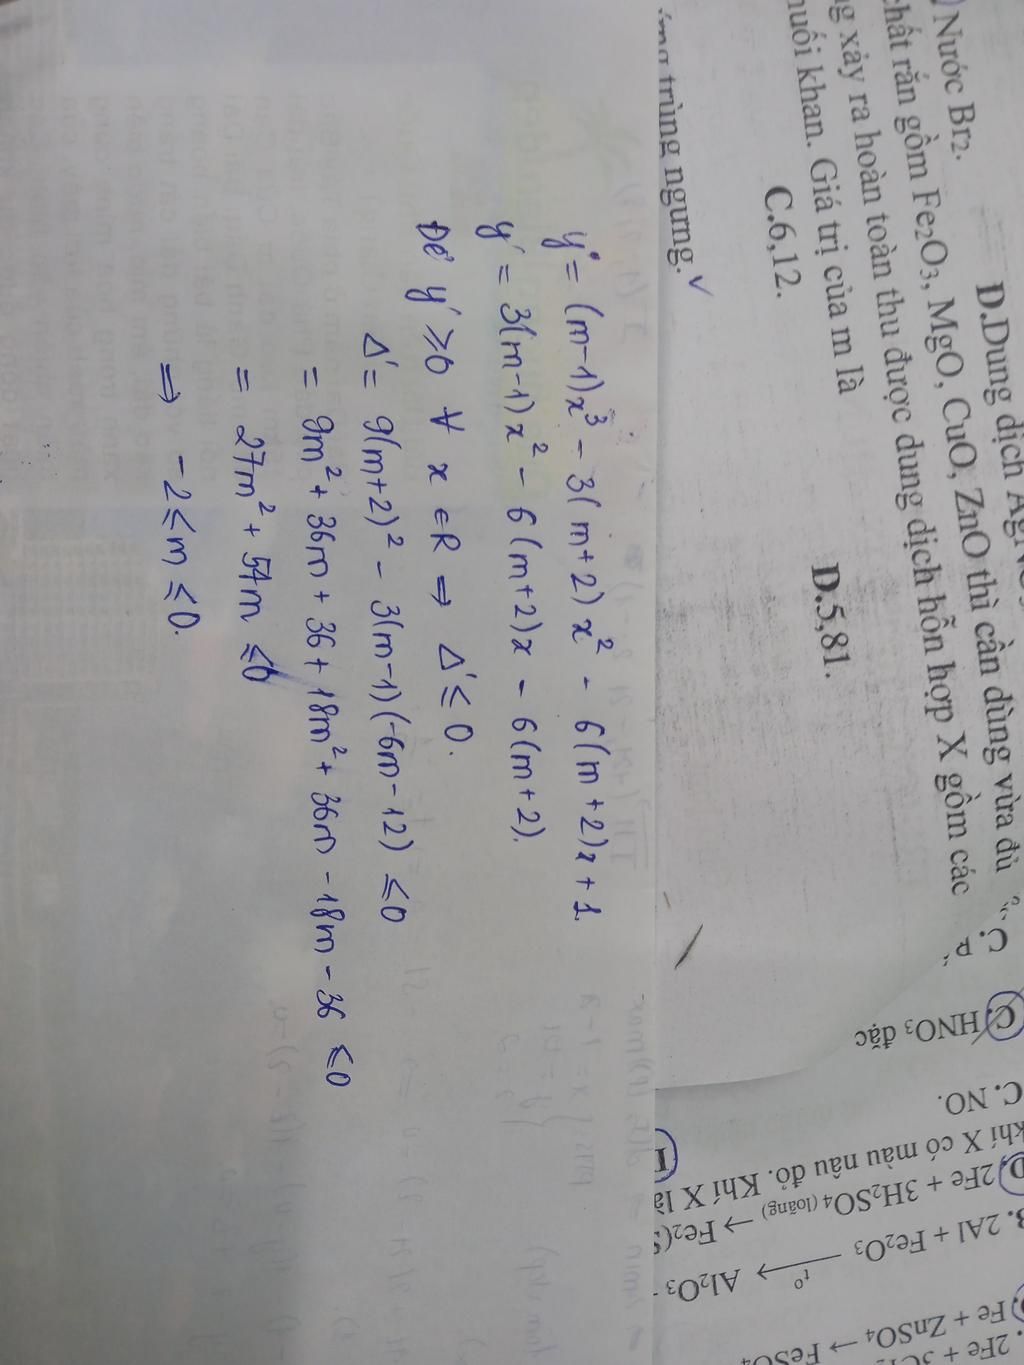 Nước Br₂.
D.Dung dịch
chất rắn gồm Fe₂O₃, MgO, CuO, ZnO thì cần dùng vừa đủ
xảy ra hoàn toàn thu được dung dịch hỗn hợp X gồm các
muối khan. Giá trị của m là
C.6,12.
D.5,81.
trùng ngưng. ✓
y = (m-1)x³ - 3(m+2)x² - 6(m+2)x + 1.
y' = 3(m-1)x² - 6(m+2)x - 6(m+2).
Để y' ≥ 0 ∀ x ∈ R ⇒ Δ' ≤ 0.
Δ' = 9(m+2)² - 3(m-1)(-6m-12) ≤ 0
= 9m² + 36m + 36 + 18m² + 36m - 18m - 36 ≤ 0
= 27m² + 54m ≤ 0
⇒ -2 ≤ m ≤ 0.
C.
C. HNO₃ đặc
C. NO.
khí X có màu nâu đỏ. Khí X là
D. 2Fe + 3H₂SO₄ (loãng) → Fe₂(S
B. 2Al + Fe₂O₃ —t⁰→ Al₂O₃
Fe + ZnSO₄ → FeSO₄